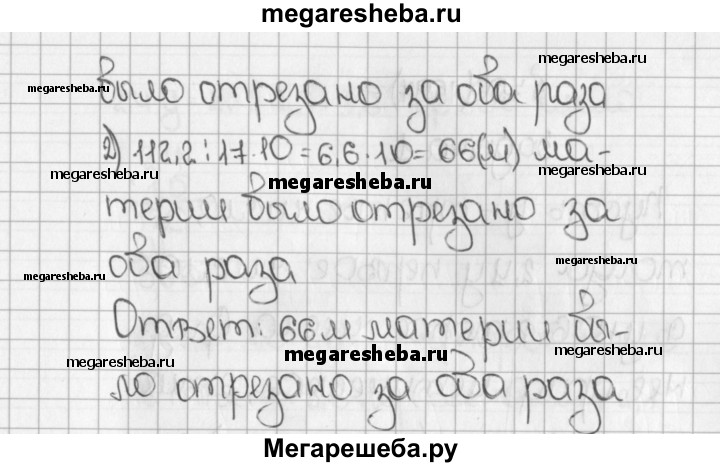 megaresheba.ru
megaresheba.ru
было отрезано за оба раза
megaresheba.ru
2) 112,2 : 17 · 10 = 6,6 · 10 = 66 (м) ма-
megaresheba.ru
megaresheba.ru
megaresheba.ru
терии было отрезано за
оба раза
megaresheba.ru
megaresheba.ru
Ответ: 66 м материи бы-
megaresheba.ru
megaresheba.ru
megaresheba.ru
ло отрезано за оба раза
Мегарешеба.ру